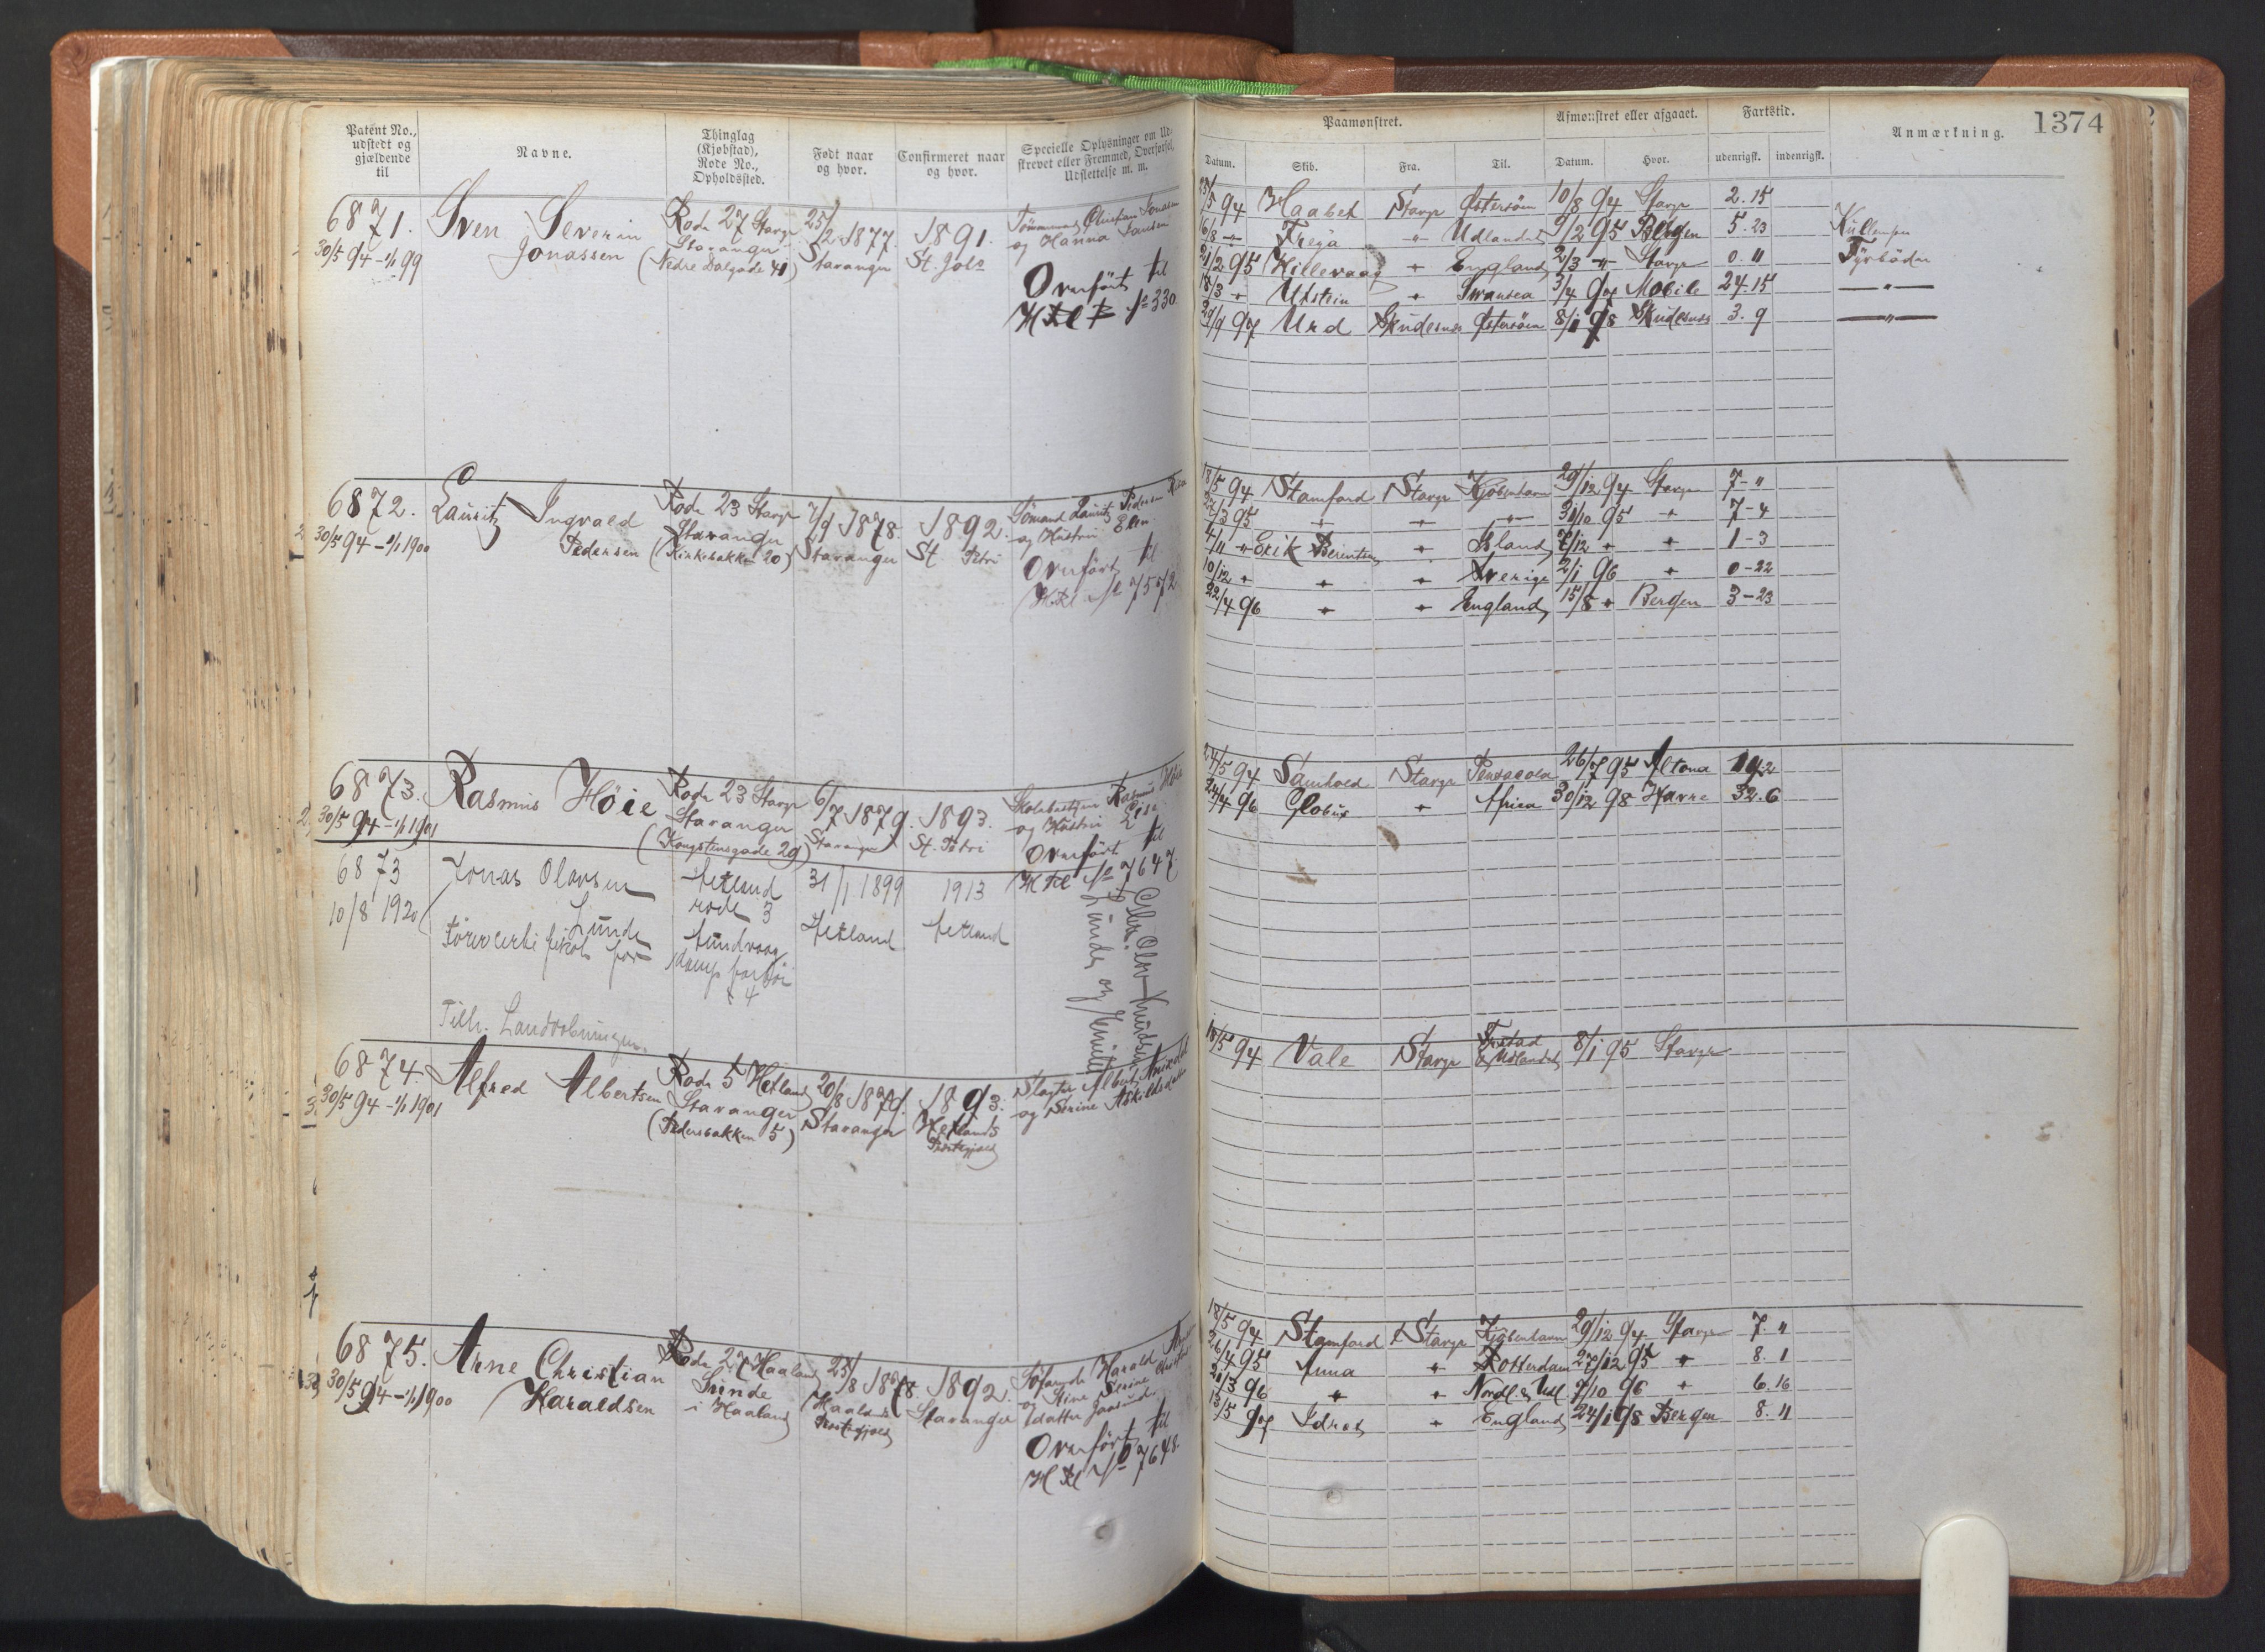 Patent No., udstedt og gjældende til
Navne.
Thinglag (Kjøbstad), Rode No., Opholdssted.
Født naar og hvor.
Confirmeret naar og hvor.
Specielle Oplysninger om Udskrevet eller Fremmed, Overførsel, Udslettelse m. m.
6871.
30/5 94 - 1/1 99
Sven Severin
Jonassen
Rode 27 Stavgr
Stavanger
(Nedre Dalgade 41)
25/2 1877.
Stavanger
1891.
St. Joh.
Tømmermand Christian Jonassen
og Hanna Jansen
Overført til
H Rl No 330
6872.
30/5 94 - 1/1 1900
Lauritz Ingvald
Pedersen
Rode 23 Stavgr
Stavanger
(Kirkebakken 20)
7/9 1878.
Stavanger
1892.
St. Petri
Sømand Lauritz Pedersen
og Hustru Elen
Overført til
H Rl No 7572
6873.
30/5 94 - 1/1 1901
Rasmus Höie
Rode 23 Stavgr
Stavanger
(Kongstensgade 29)
6/7 1879.
Stavanger
1893.
St. Petri
Rasmus Höie
og Hustru
Overført til
H Rl No 7647.
6873
10/8 1920
Jonas Olavsen
Lunde
Hetland
rode 3
Hundvaag
31/1 1899
Hetland
1913
Hetland
Olav Knudsen
Lunde og
Tilh. Landrobningen.
6874.
30/5 94 - 1/1 1901
Alfred Albertsen
Rode 5 Hetland
Stavanger
(Pedersbakken 5)
20/8 1879.
Stavanger
1893.
Hetlands
Præstegjæld
Slagter Albert
og Serine Askildsdatter
6875.
30/5 94 - 1/1 1900
Arne Christian
Haraldsen
Rode 27 Haaland
Sunde
i Haaland
25/8 1878.
Haalands
Præstegjæld
1892.
Stavanger
Harald
og Stine Serine
Overført til
H Rl No 7648.
1374
Paamønstret.
Afmønstret eller afgaaet.
Fartstid.
Anmærkning.
Datum. Skib. Fra. Til. Datum. Hvor. udenrigsk. indenrigsk.
23/5 94 Haabet Stavgr Østersøen 10/8 94 Stavgr 2.15
16/8 " Freya " Udlandet 9/2 95 Bergen 5.23
21/2 95 Hillevaag " England 2/3 " Stavgr 0.11 Fyrbøder
18/3 " Utstein " Swansea 3/4 97 Mobile 24.15 "
29/9 97 Urd Skudesnes Østersøen 8/1 98 Skudesnes 3.9 "
18/5 94 Stamford Stavgr Kjøbenhavn 29/12 94 Stavgr 7-"
27/3 95 " " " 31/10 95 " 7-4
4/11 " Erik Berentsen " Island 7/12 " " 1-3
10/12 " " " Sverige 2/1 96 " 0-22
22/4 96 " " England 15/8 " Bergen 3-23
24/5 94 Samhold Stavgr Pensacola 26/7 95 Altona
24/4 96 Globus " Africa 30/12 98 Havre 32.6
18/5 94 Vale Stavgr
& Udlandet 8/1 95 Stavgr
18/5 94 Stamford Stavgr Kjøbenhavn 29/12 94 Stavgr 7."
26/4 95 Anna " Rotterdam 27/12 95 " 8.1
21/3 96 " " Nordl. & Udl 7/10 96 " 6.16
13/5 97 Idræt " England 24/1 98 Bergen 8.11